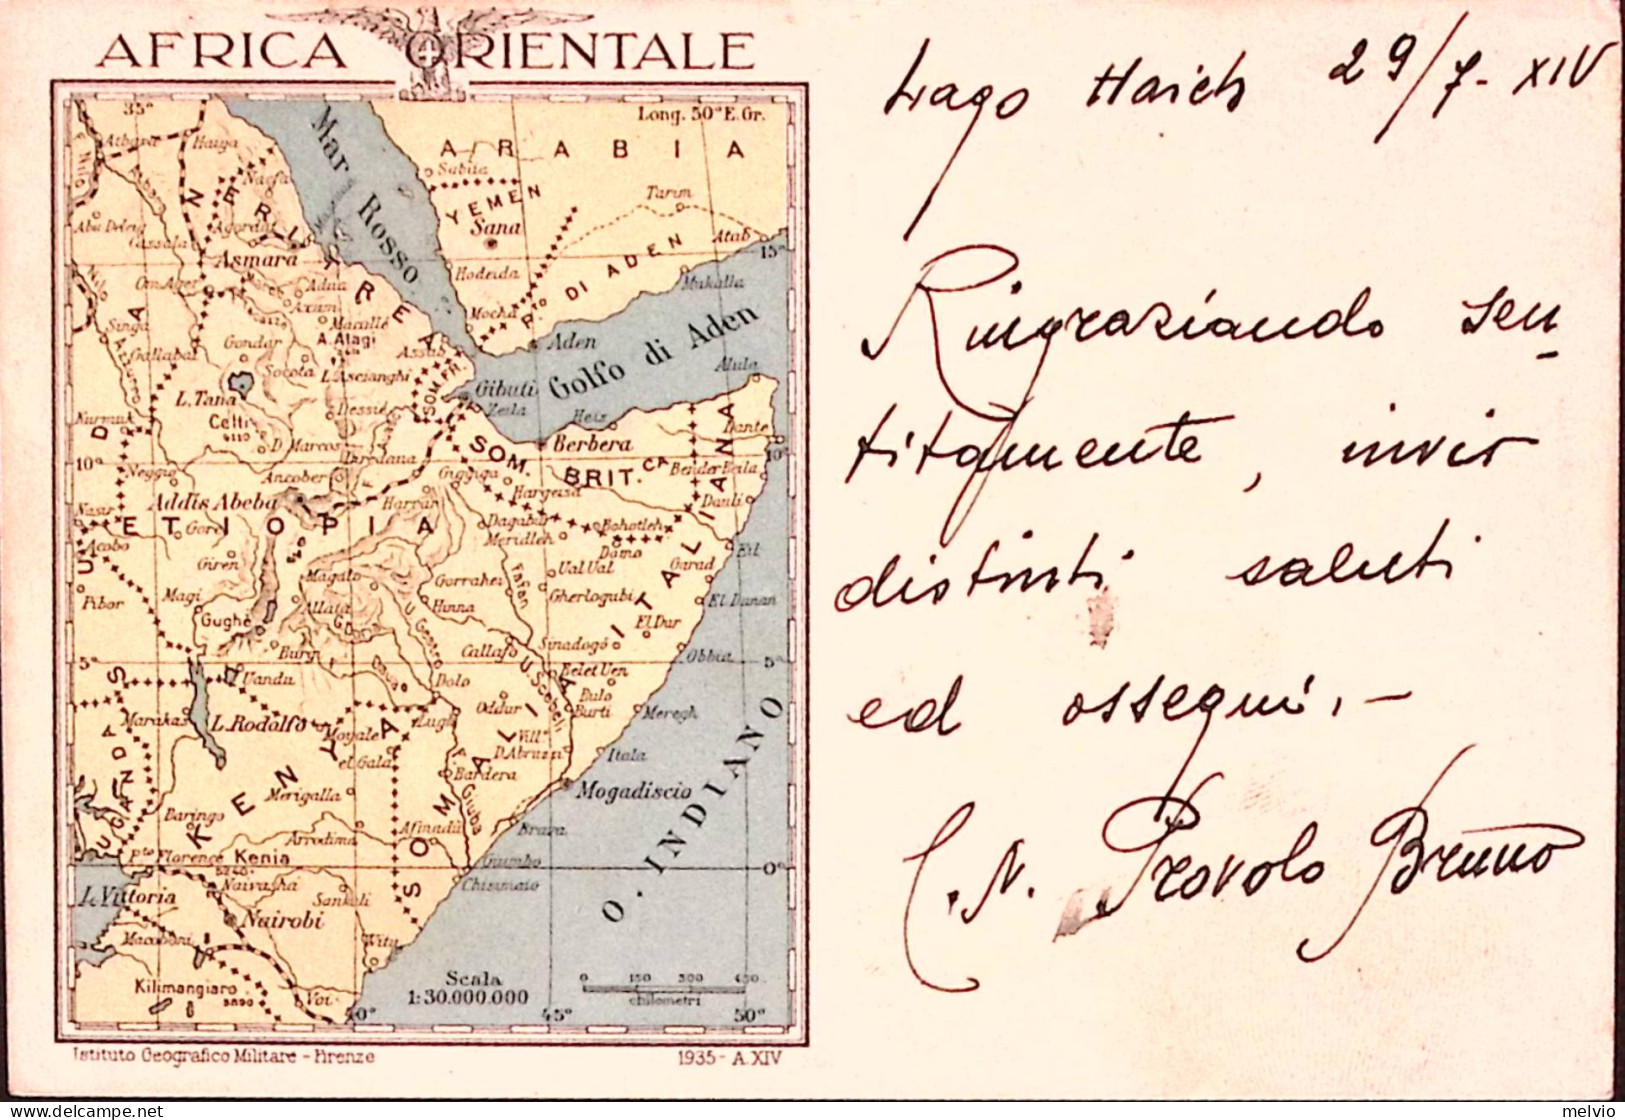 AFRICA ORIENTALE
35°
Long. 50° E. Gr.
Mar Rosso
ARABIA
Atbara
Haiga
Sabiia
YEMEN
Tarim
Nacfa
ERITREA
Sana
Abu Deleig
Agordat
Cassala
Atab
15°
Asmara
Hodeida
P.to DI ADEN
Makalla
Om Ager
Adua
Axum
Mocha
Singa
Macallé
A. Alagi
Gallabat
Gondar
Assab
Aden
Golfo di Aden
Socota
L. Ascianghi
Alula
L. Tana
SOM. FR.
Gibuti
Zeila
Dessiè
Heis
Kurmuk
Celti
4110
D. Marcos
Dante
Berbera
10°
SOM. BRIT.CA
Neggio
Ancober
Diredaua
Giggiga
Bender Beila
Addis Abeba
Harrar
Hargeisa
Danli
Nasir
ETIOPIA
Gore
Dagabur
Bohotleh
Acobo
Meridleh
Damo
Eil
Giren
Ual Ual
Garad
Magalo
Gorrahei
Fafan
Gherlogubi
Pibor
Magi
Allata
Hinna
El Danan
Gughè
El Dur
U. Gestro
Sinadogò
Burgi
Callafo
Obbia
5°
SUD
Uandu
Dolo
U. Scebeli
Belet Uen
Bulo Burti
Marakas
Oddur
Meregh
L. Rodolfo
Lugh
Moyale
Vill.°
D. Abruzzi
Itala
el Gala
Bardera
SOMALIA ITALIANA
KENYA
Merigalla
Mogadiscio
UGANDA
Baring°
Giuba
O. INDIANO
Arrodima
Afmadù
Brava
P.to Florence
Kenia
5240
Giumbo
0°
Naivasha
Chisimaio
L. Vittoria
Sankuli
Nairobi
Macaboni
Witu
Scala
1:30.000.000
0 150 300 450
chilometri
Kilimangiaro
5890
Voi
40° 45° 50°
Istituto Geografico Militare - Firenze
1935 - A. XIV
Lago Haich 29/7 - XIV
Ringraziando sen-
titamente, invio
distinti saluti
ed ossequi. -
C. N. Provolo Bruno
melvio